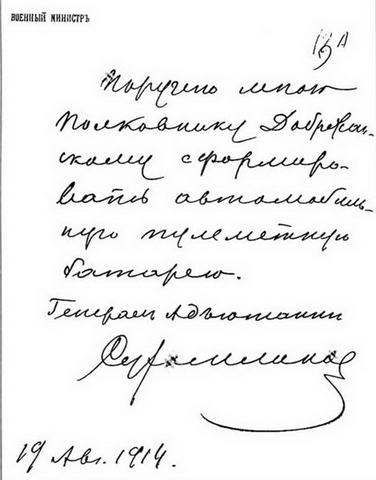 ВОЕННЫЙ МИНИСТРЪ
Поручено мною
Полковнику Добржан-
скому сформиро-
вать автомобиль-
ную пулеметную
батарею.
Генералъ Адъютантъ
Сухомлиновъ
19 Авг. 1914.